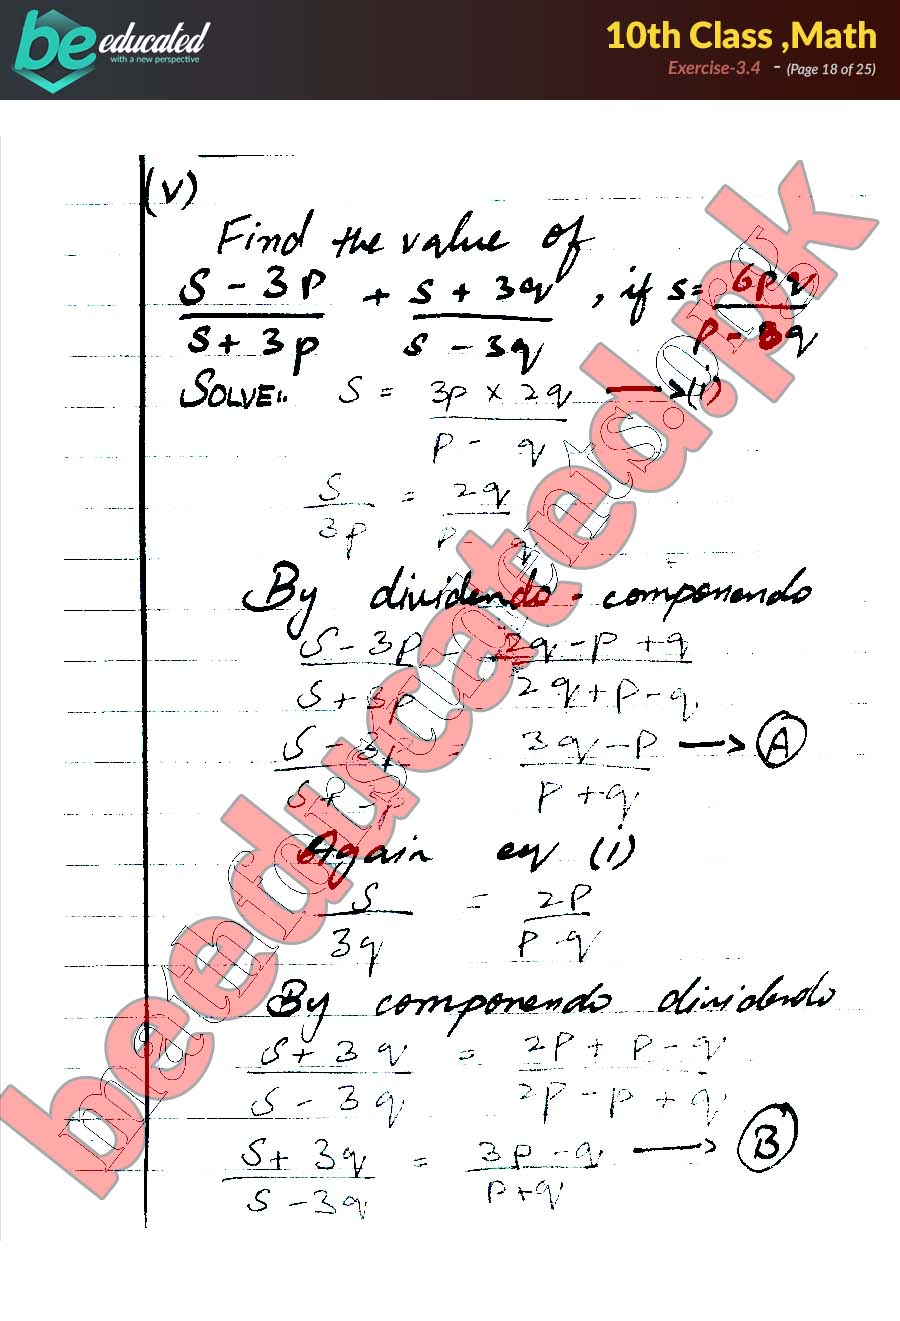 be educated
with a new perspective
10th Class ,Math
Exercise-3.4 - (Page 18 of 25)
(v)
Find the value of
S - 3P / S + 3p + S + 3q / S - 3q , if s = 6pq / P - 3q
SOLVE:. S = 3p × 2q / P - q → (i)
S / 3p = 2q / P - q
By dividendo - componendo
S - 3P / S + 3P = 2q - P + q / 2q + P - q
S - 3P / S + P = 3q - P / P + q → (A)
Again eq (i)
S / 3q = 2P / P - q
By componendo dividendo
S + 3q / S - 3q = 2P + P - q / 2P - P + q
S + 3q / S - 3q = 3P - q / P + q → (B)
beeducated.pk